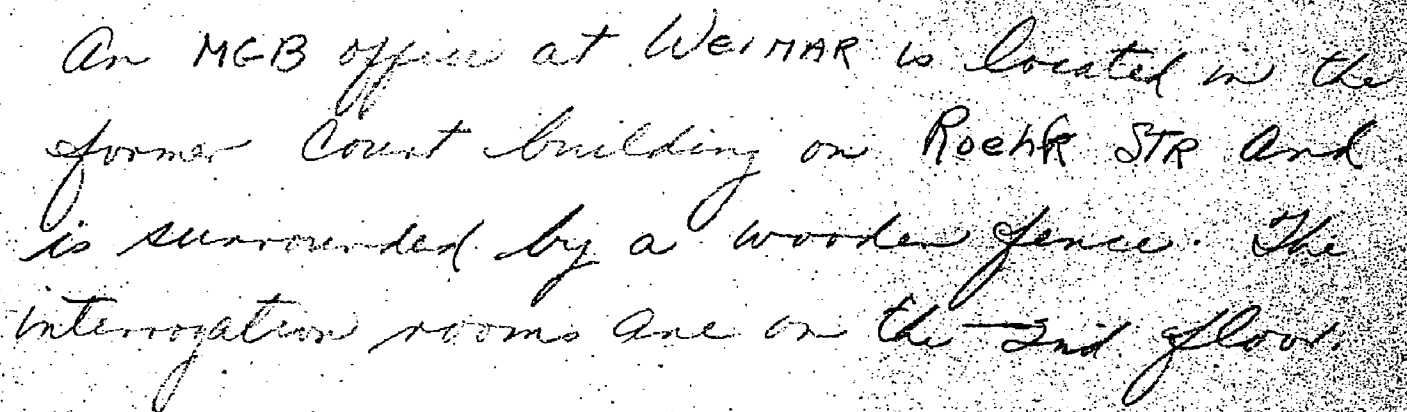 An MGB office at WEIMAR is located in the
former Court building on RoehR STR and
is surrounded by a wooden fence. The
interrogation rooms are on the 2nd floor.